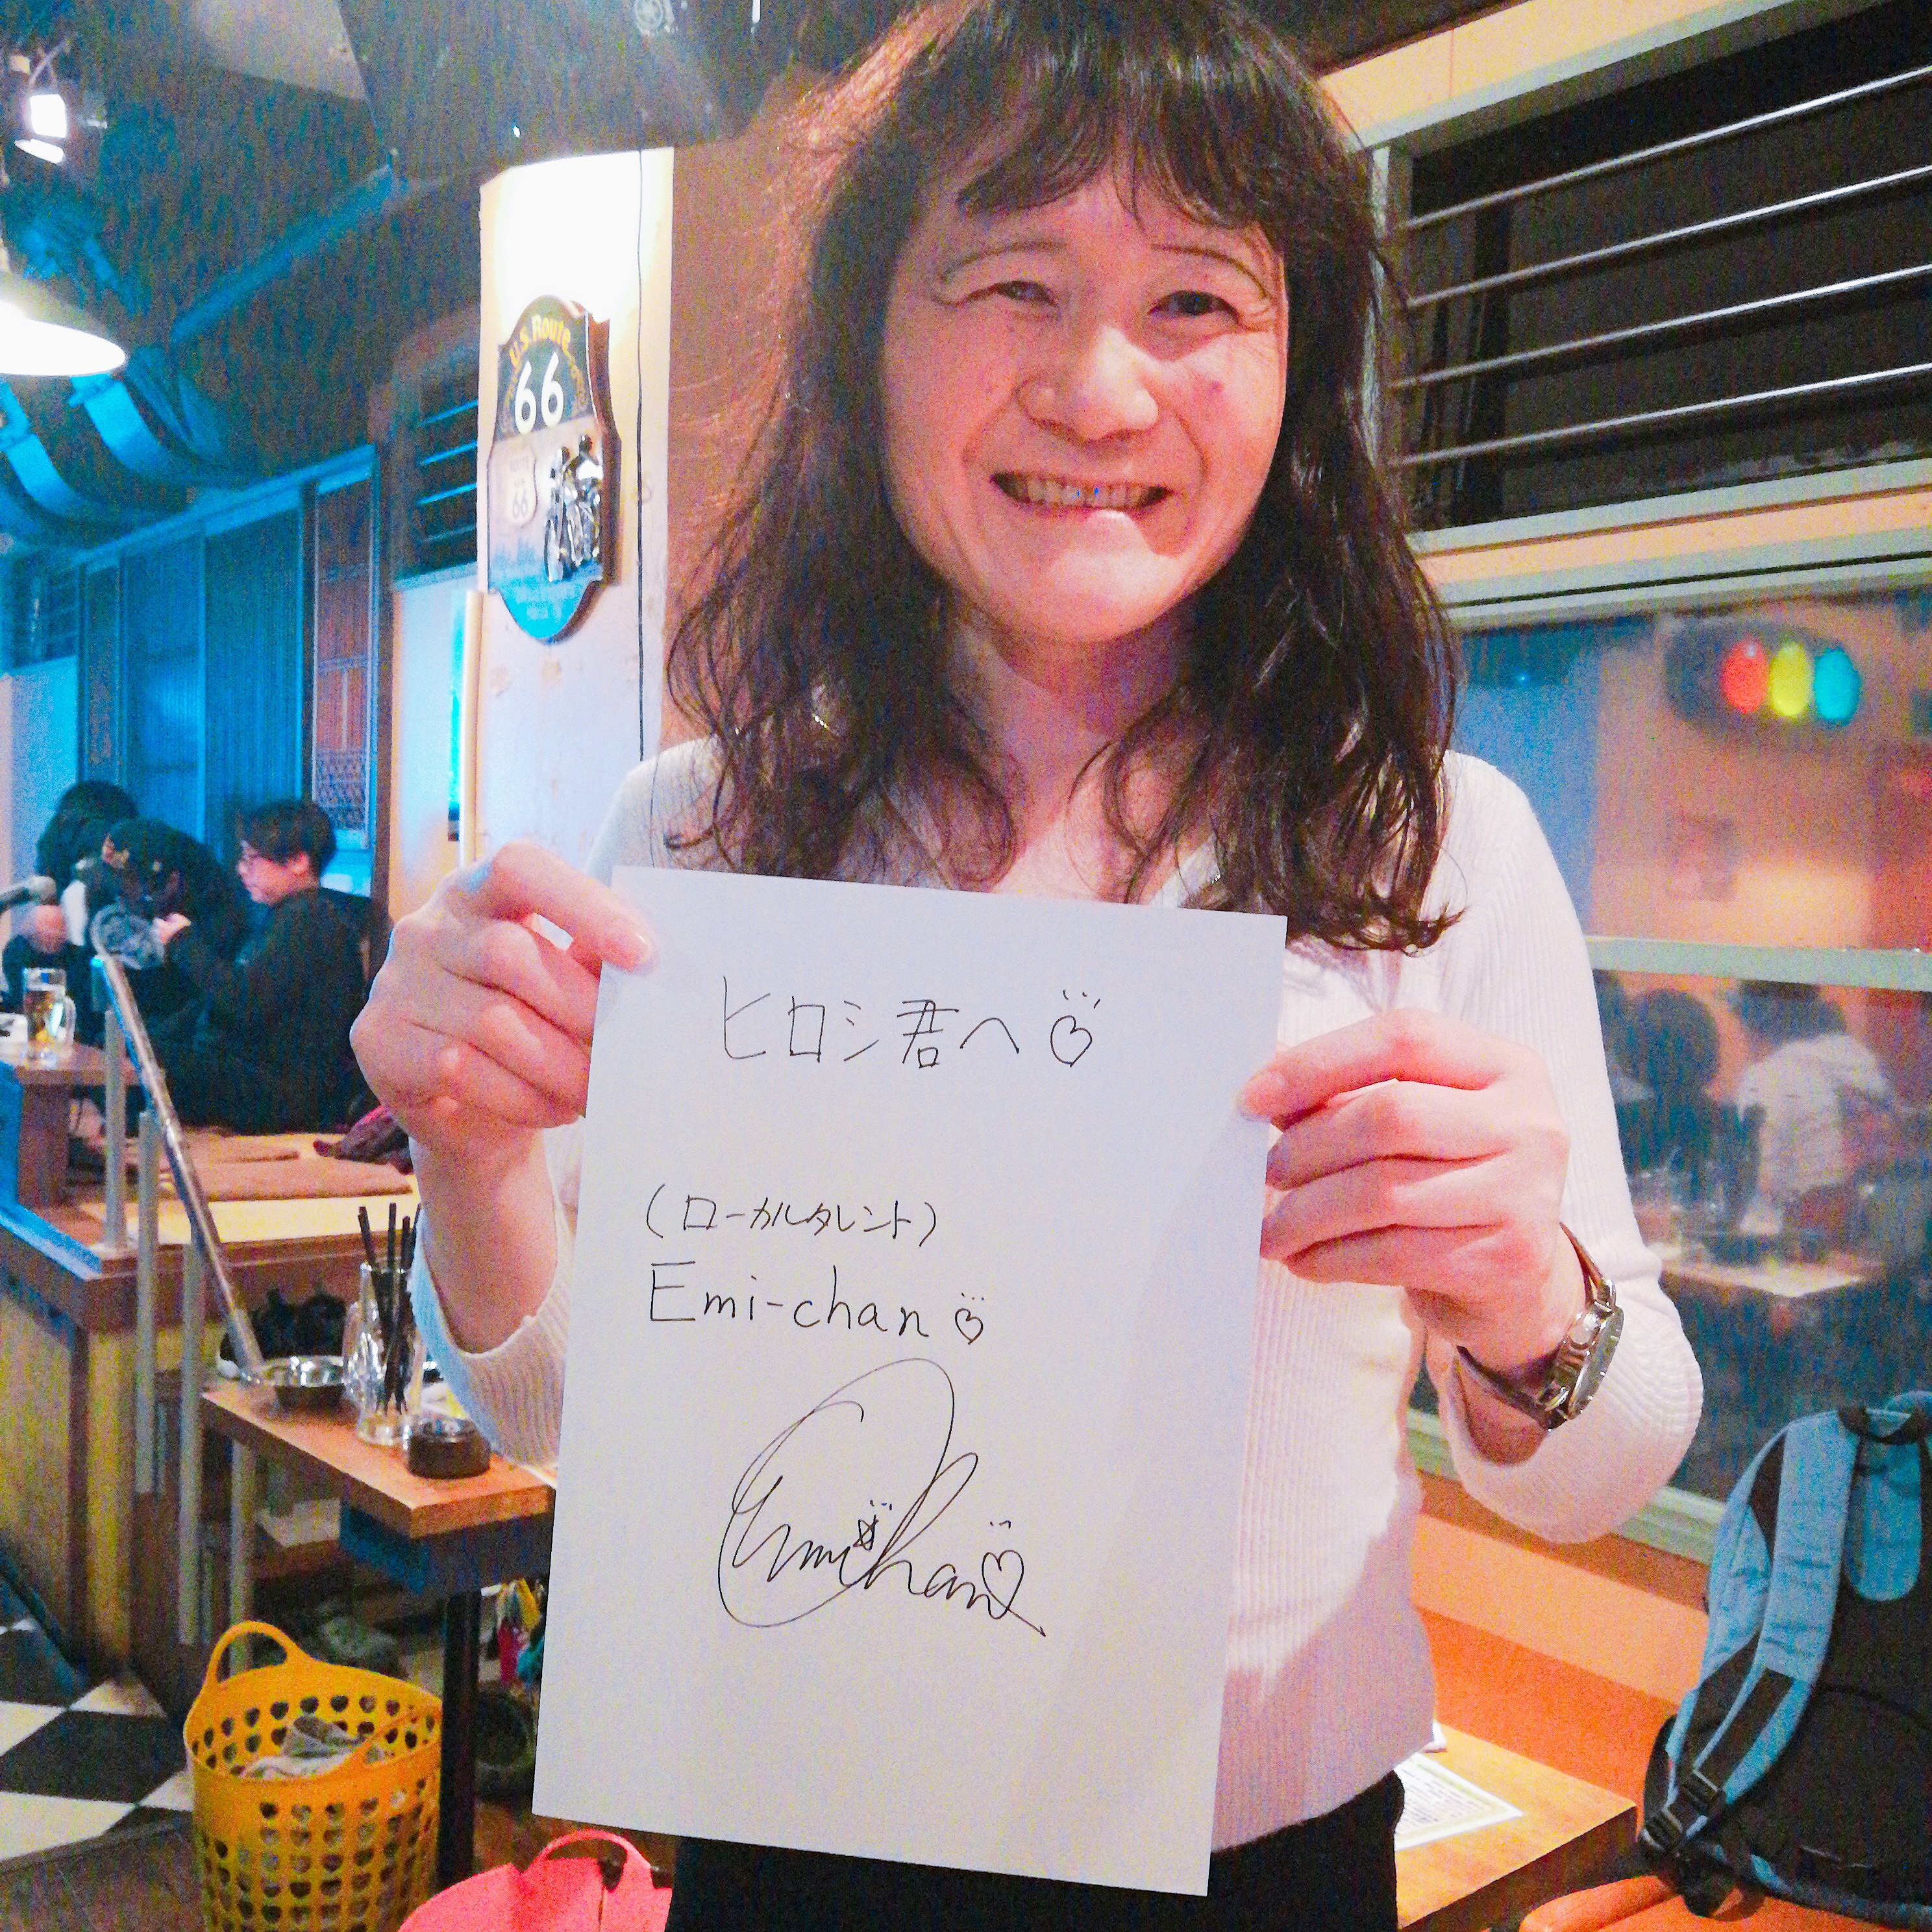 U.S. Route
66
ROUTE
66
ヒロシ君へ♡
(ローカルタレント)
Emi-chan♡
Emichan♡